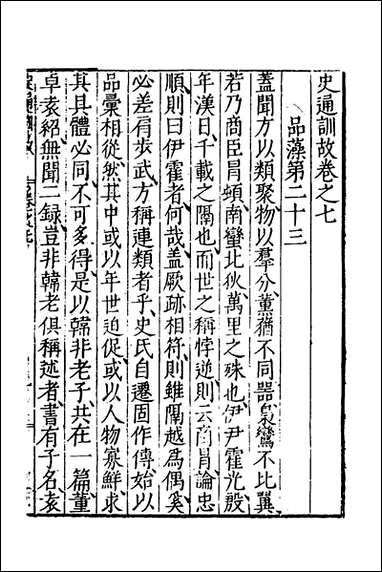 史通訓故卷之七
品藻第二十三
蓋聞方以類聚物以羣分薰蕕不同器梟鸞不比翼
若乃商臣冒頓南蠻北狄萬里之殊也伊尹霍光殷
年漢日千載之隔也而世之稱悖逆則云商冒論忠
順則曰伊霍者何哉盖厥跡相符則雖隔越爲偶奚
必差肩步武方稱連類者乎史氏自遷固作傳始以
品彙相從然其中或以年世迫促或以人物寡鮮求
其具體必同不可多得是以韓非老子共在一篇董
卓袁紹無聞二録豈非韓老俱稱述者書有子名袁